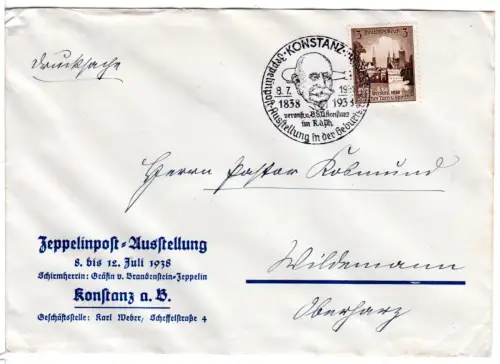 Drucksache
KONSTANZ
Zeppelinpost-Ausstellung in der
8.7.
1838 1938
veranst. v. Konstanz
im R.d.Ph.
3 Deutsches Reich 3
Herrn Pastor Kosmund
Zeppelinpost-Ausstellung
8. bis 12. Juli 1938
Schirmherrin: Gräfin v. Brandenstein-Zeppelin
Konstanz a. B.
Geschäftsstelle: Karl Weber, Scheffelstraße 4
Wildemann
Oberharz